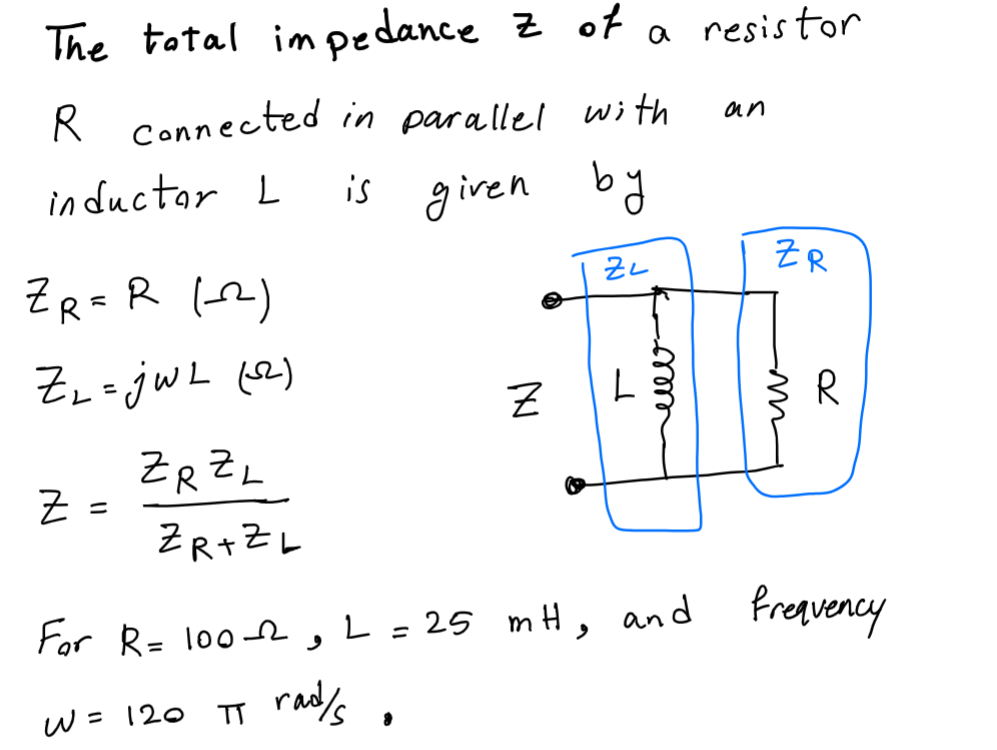 The total impedance Z of a resistor
R connected in parallel with an
inductor L is given by
Z_R = R (Ω)
Z_L = jwL (Ω)
Z = Z_R Z_L / Z_R + Z_L
Z_L
Z_R
Z
L
R
For R = 100 Ω, L = 25 mH, and frequency
w = 120 π rad/s.